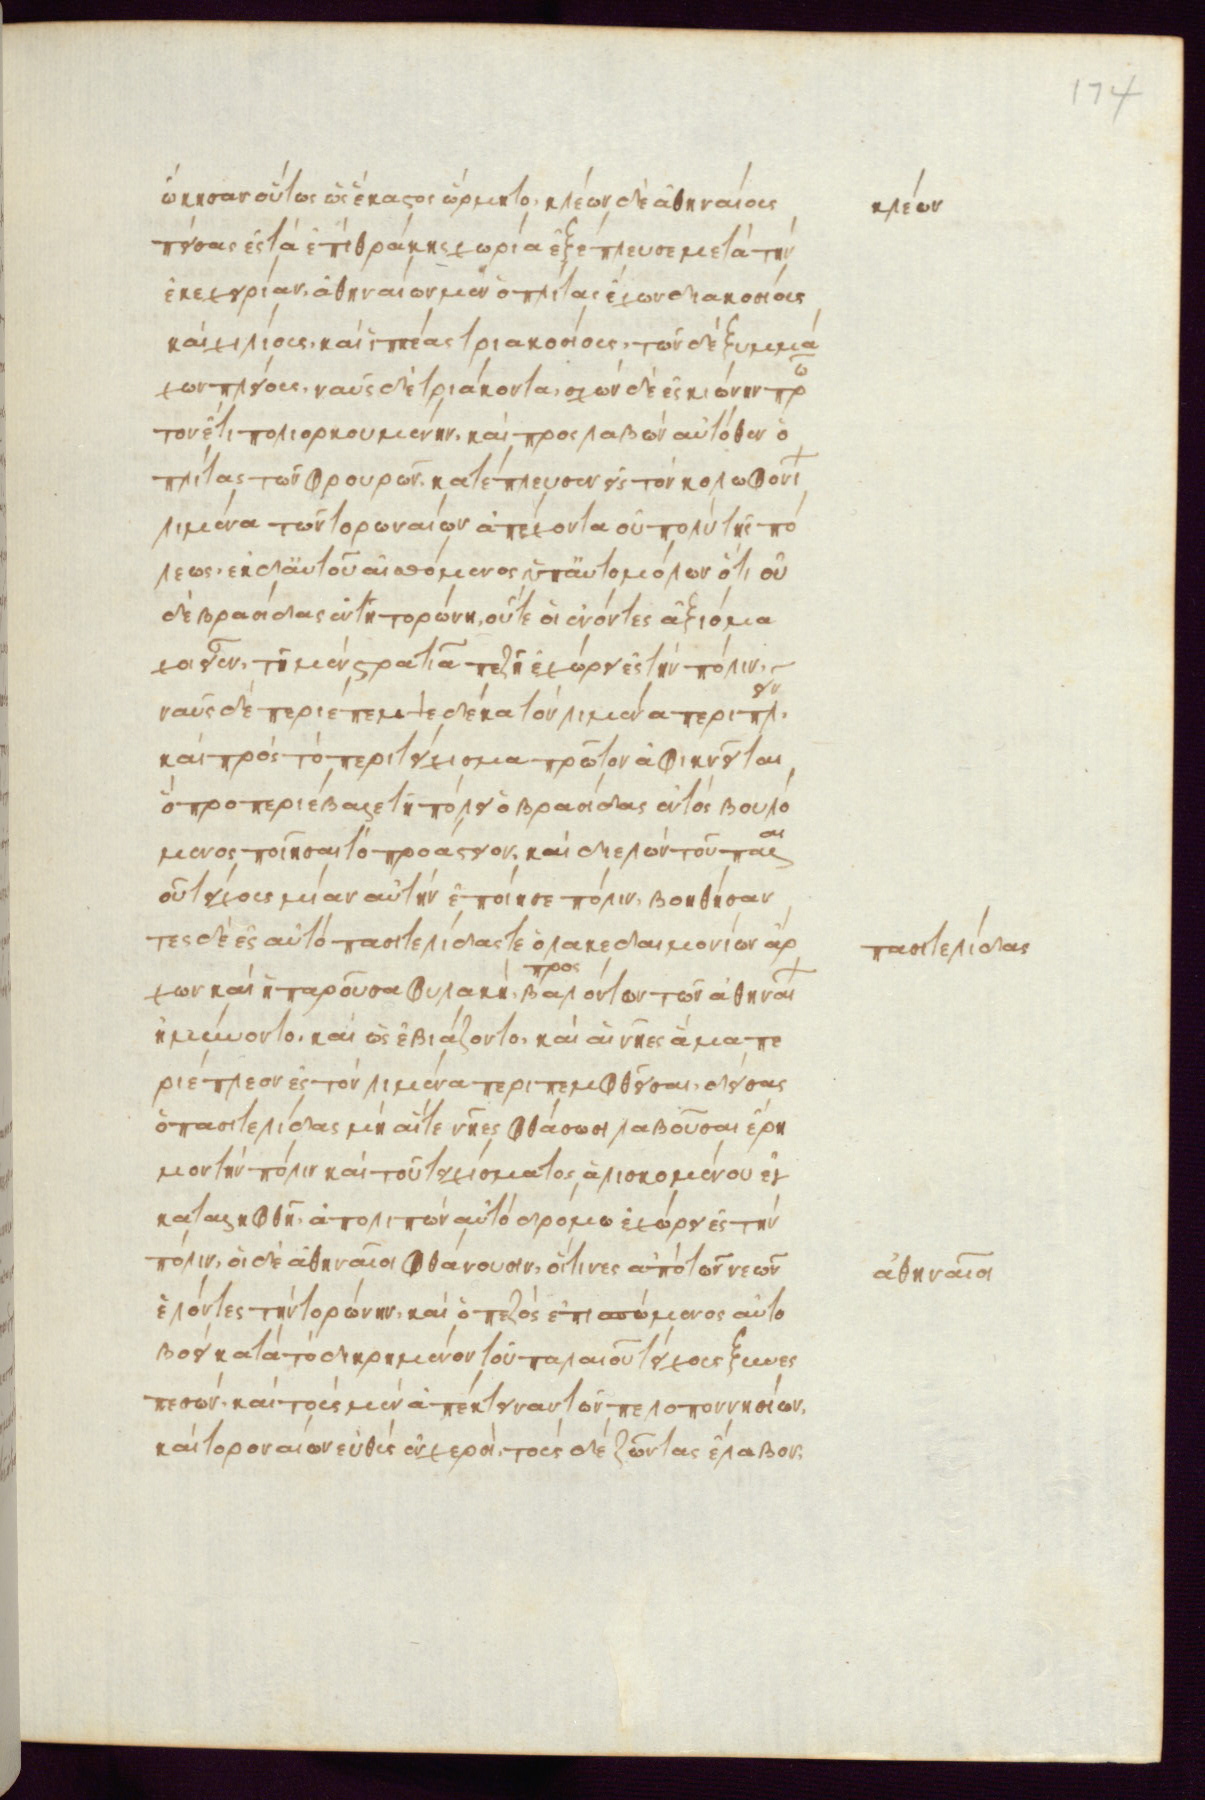 174
ᾤκησαν οὕτως ὡς ἕκαστος ὥρμητο. κλέων δὲ ἀθηναίους
κλέων
πείσας ἐς τὰ ἐπὶ θράκης χωρία ἐξέπλευσε μετὰ τὴν
ἐκεχειρίαν, ἀθηναίων μὲν ὁπλίτας ἔχων διακοσίους
καὶ χιλίους, καὶ ἱππέας τριακοσίους, τῶν δὲ ξυμμά
χων πλείους, ναῦς δὲ τριάκοντα, σχὼν δὲ ἐς σκιώνην πρῶ
τον ἔτι πολιορκουμένην, καὶ προσλαβὼν αὐτόθεν ὁ
πλίτας τῶν φρουρῶν, κατέπλευσεν εἰς τὸν κολοφωνί
λιμένα τῶν τορωναίων ἀπέχοντα οὐ πολὺ τῆς πό
λεως. ἐκ δ' αὐτοῦ αἰσθόμενος ὑπ' αὐτομόλων ὅτι οὐ
δὲ βρασίδας ἐν τῇ τορώνῃ, οὔτε οἱ ἐνόντες ἀξιόμα
χοι εἶεν, τῇ μὲν στρατιᾷ πεζῇ ἐχώρει ἐς τὴν πόλιν,
ναῦς δὲ περιέπεμψε δέκα τὸν λιμένα περιπλεῖν.
καὶ πρὸς τὸ περιτείχισμα πρῶτον ἀφικνεῖται
ὃ προπεριέβαλε τῇ πόλει ὁ βρασίδας ἐντὸς βουλό
μενος ποιῆσαι τὸ προάστειον, καὶ διελὼν τοῦ παλαι
οῦ τείχους μίαν αὐτὴν ἐποίησε πόλιν. βοηθήσαν
τες δὲ ἐς αὐτὸ πασιτελίδας τε ὁ λακεδαιμονίων ἄρ
πασιτελίδας
χων καὶ ἡ παροῦσα φυλακή, προσβαλόντων τῶν ἀθηναί
ἠμύνοντο, καὶ ὡς ἐβιάζοντο, καὶ αἱ νῆες ἅμα πε
ριέπλεον ἐς τὸν λιμένα περιπεμφθεῖσαι, δείσας
ὁ πασιτελίδας μὴ αἵ τε νῆες φθάσωσι λαβοῦσαι ἐρῆ
μον τὴν πόλιν καὶ τοῦ τειχίσματος ἁλισκομένου ἐγ
καταληφθῇ, ἀπολιπὼν αὐτὸ δρόμω ἐχώρει ἐς τὴν
πόλιν. οἱ δὲ ἀθηναῖοι φθάνουσιν, οἵτινες ἀπὸ τῶν νεῶν
ἀθηναῖοι
ἑλόντες τὴν τορώνην, καὶ ὁ πεζὸς ἐπισπώμενος αὐτο
βοεὶ κατὰ τὸ διῃρημένον τοῦ παλαιοῦ τείχους ξυνες
πεσών. καὶ τοὺς μὲν ἀπέκτειναν τῶν πελοποννησίων,
καὶ τορωναίων εὐθὺς ἐν χερσί, τοὺς δὲ ζῶντας ἔλαβον,